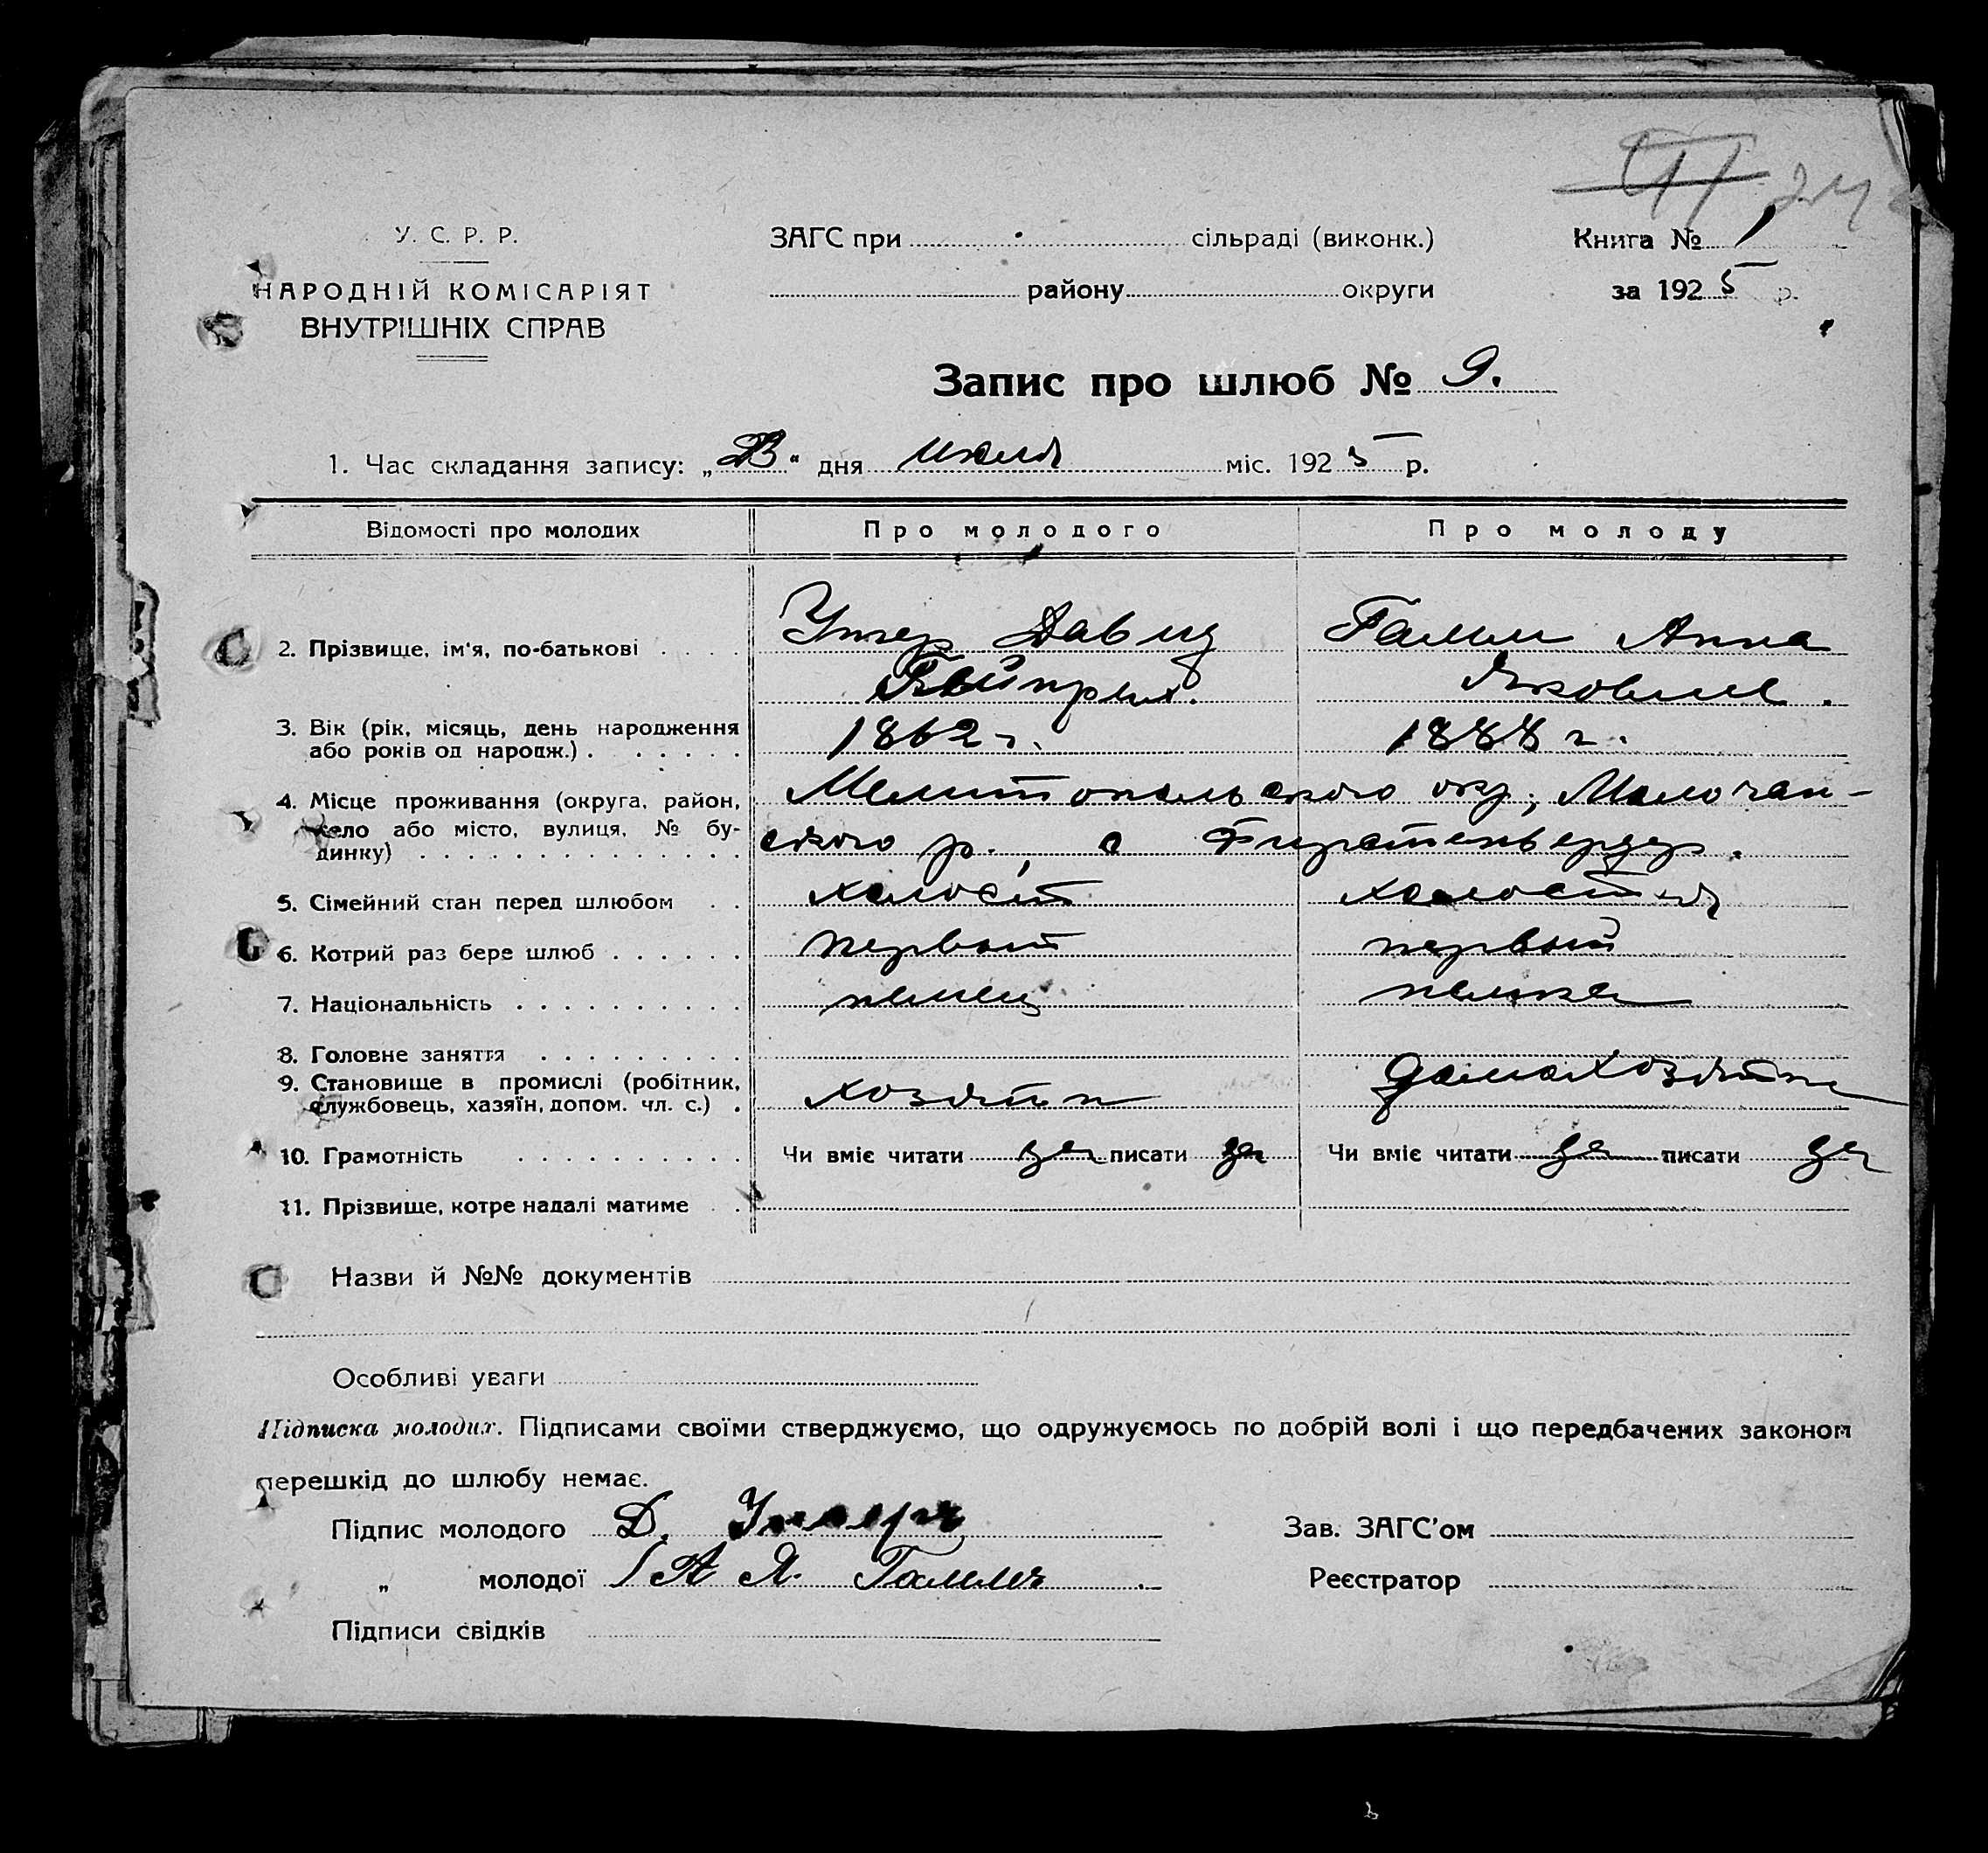 24
У. С. Р. Р.
НАРОДНІЙ КОМІСАРІЯТ
ВНУТРІШНІХ СПРАВ
ЗАГС при сільраді (виконк.)
району округи
Книга № 1
за 1925 р.
Запис про шлюб № 9.
1. Час складання запису: „ “ дня июля міс. 1925 р.
Відомості про молодих Про молодого Про молоду
2. Прізвище, ім'я, по-батькові Унгер Давид Гамм Анна
Гейнрих. Яковлев.
3. Вік (рік, місяць, день народження
або років од народж.) 1862 г. 1888 г.
4. Місце проживання (округа, район, Мелитопольского окр., Молочан-
село або місто, вулиця, № бу- ского р., с Фирстенвердер.
динку)
5. Сімейний стан перед шлюбом холост холостая
6. Котрий раз бере шлюб первый первый
7. Національність немец немка
8. Головне заняття
9. Становище в промислі (робітник,
службовець, хазяїн, допом. чл. с.) хозяин домохозяйн
10. Грамотність Чи вміє читати да писати да Чи вміє читати да писати да
11. Прізвище, котре надалі матиме
Назви й №№ документів
Особливі уваги
Підписка молодих. Підписами своїми стверджуємо, що одружуємось по добрій волі і що передбачених законом
перешкід до шлюбу немає.
Підпис молодого Д. Унгеръ Зав. ЗАГС'ом
„ молодої А Я. Гаммъ Реєстратор
Підписи свідків